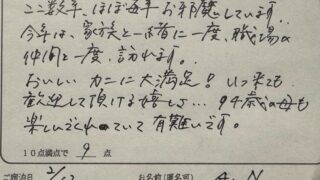 ここ数年、ほぼ毎年お邪魔しています。
今年は、家族と一緒に一度、職場の
仲間と一度、訪れます。
おいしいカニに大満足！いつ来ても
歓迎して頂ける嬉しさ… 94歳の母も
楽しんでくれていて有難いです。
10点満点で 9 点
ご宿泊日 2/ お名前(匿名可) A. N